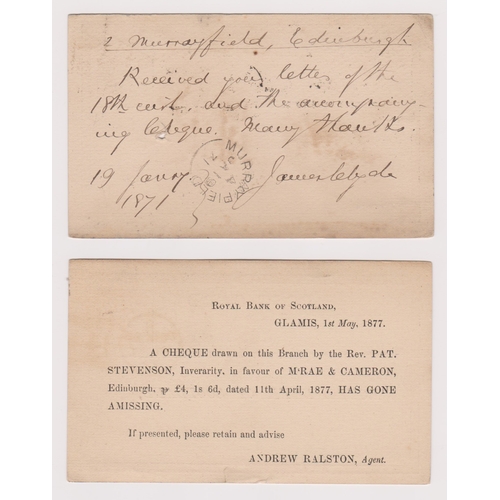 2 Murrayfield, Edinburgh
Received your letter of the
18th inst. and the accompany-
ing Cheque. Many thanks.
19 Jany
1871
James Clyde
MURRAYFIELD
ROYAL BANK OF SCOTLAND,
GLAMIS, 1st May, 1877.
A CHEQUE drawn on this Branch by the Rev. PAT.
STEVENSON, Inverarity, in favour of M‘RAE & CAMERON,
Edinburgh, £4, 1s 6d, dated 11th April, 1877, HAS GONE
AMISSING.
If presented, please retain and advise
ANDREW RALSTON, Agent.